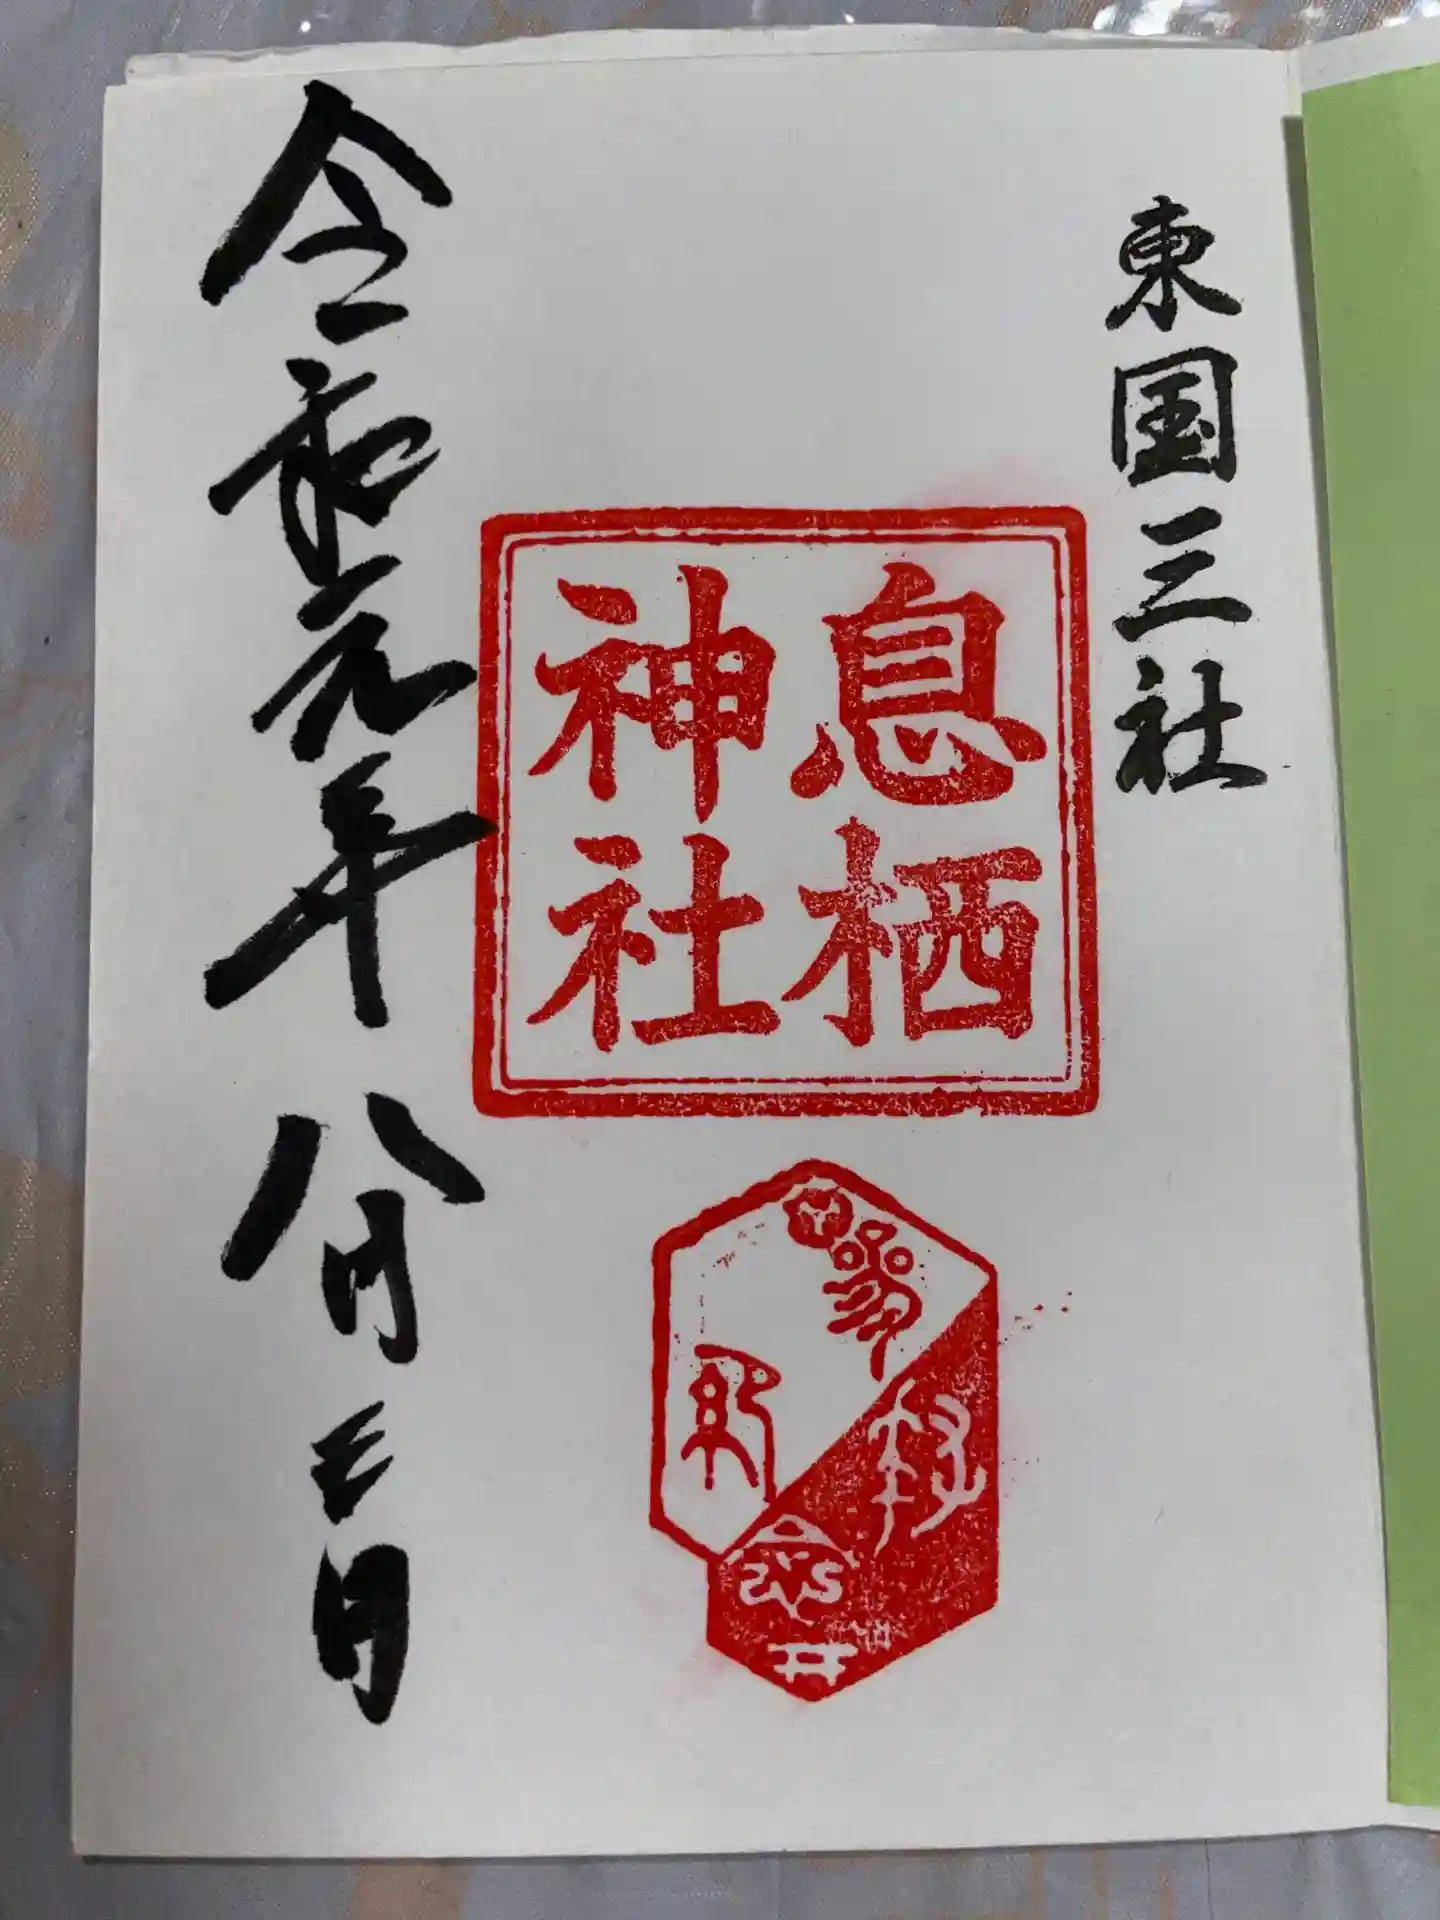 東国三社
息栖
神社
令和元年 八月三日